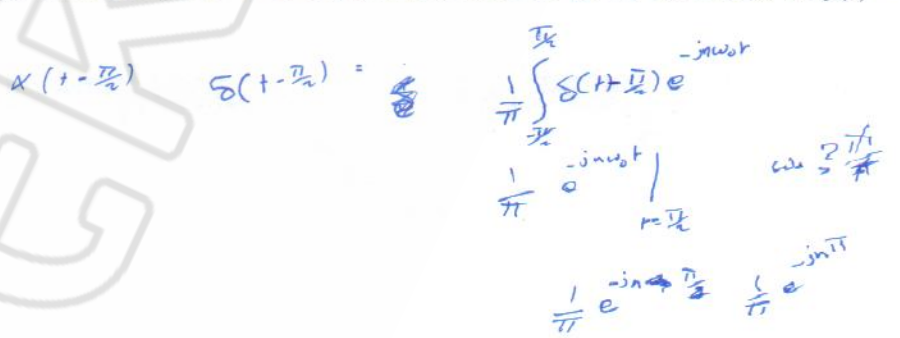 x(t - π/2)   δ(t - π/2) =   1/π ∫_{-π/2}^{π/2} δ(t - π/2) e^{-jnω₀t}
1/π e^{-jnω₀t} |_{t=π/2}
1/π e^{-jn π/2}   1/π e^{-jnπ}